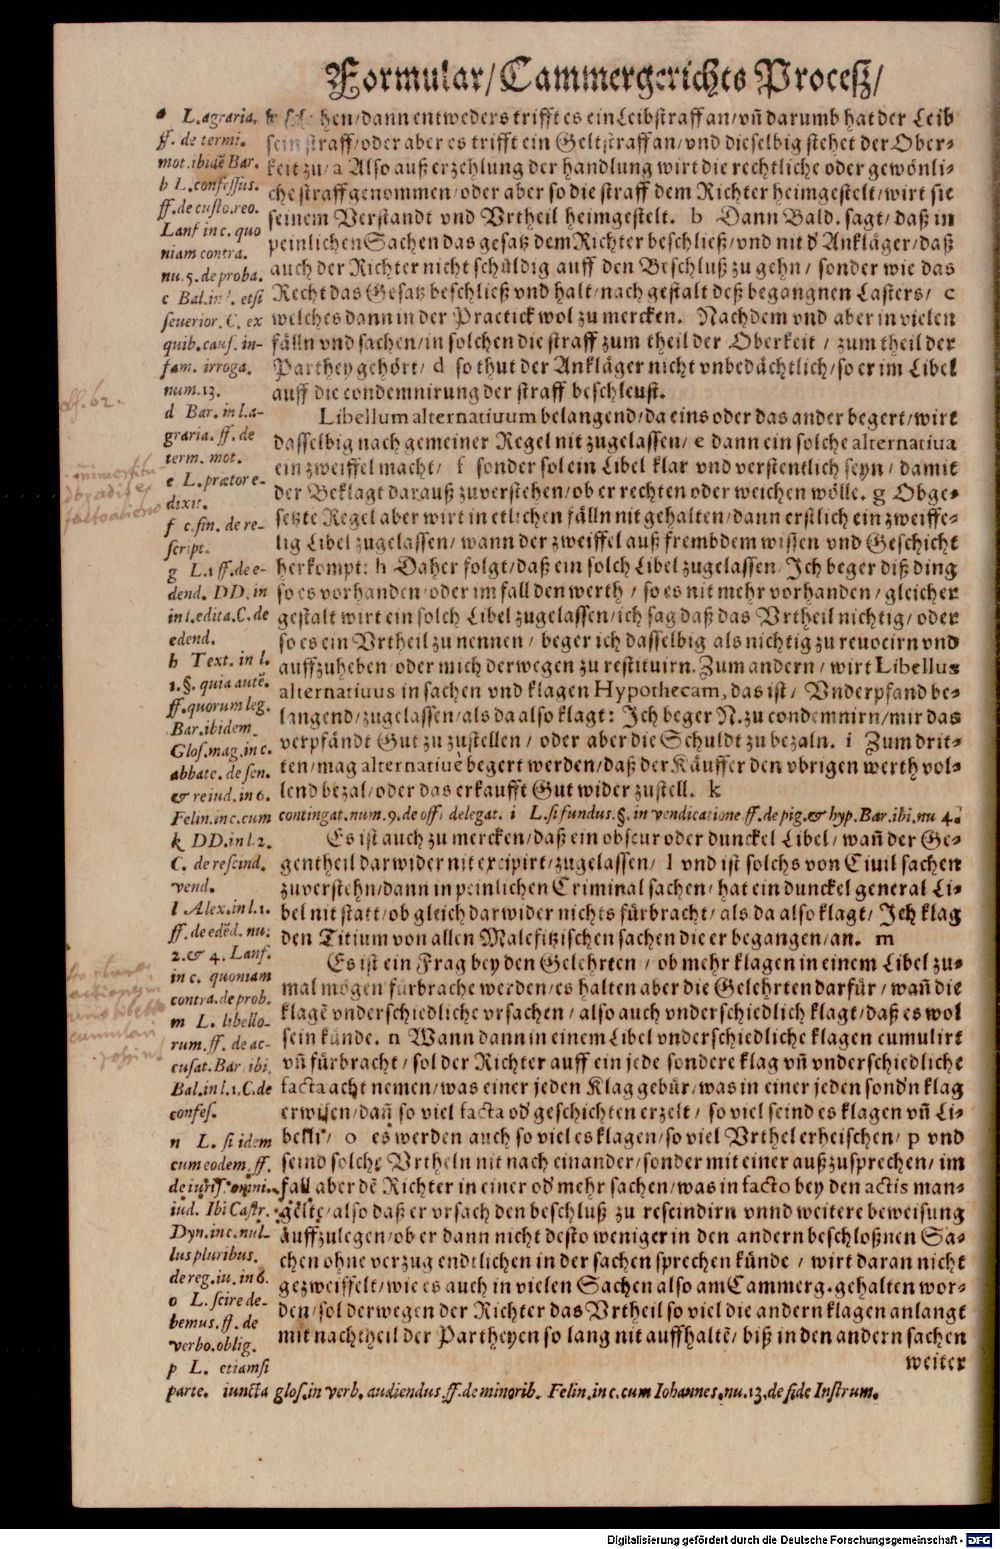 Formular/Cammergerichts Procesz/
hen/dann entweders trifft es ein Leibstraff an/vñ darumb hat der Leib
sein straff/oder aber es trifft ein Geltstraff an/vnd dieselbig stehet der Ober-
keit zu/a Also auß erzehlung der handlung wirt die rechtliche oder gewönli-
che straff genommen/oder aber so die straff dem Richter heimgestelt/wirt sie
seinem Verstandt vnd Vrtheil heimgestelt. b Dann Bald. sagt/daß in
peinlichen Sachen das gesatz dem Richter beschließ/vnd nit d' Ankläger/daß
auch der Richter nicht schüldig auff den Beschluß zu gehn/ sonder wie das
Recht das Gesatz beschließ vnd halt/nach gestalt deß begangnen Lasters/ c
welches dann in der Practick wol zu mercken. Nach dem vnd aber in vielen
fälln vnd sachen/in solchen die straff zum theil der Oberkeit / zum theil der
Parthey gehört/ d so thut der Ankläger nicht vnbedächtlich/so er im Libel
auff die condemnirung der straff beschleust.
Libellum alternatiuum belangend/da eins oder das ander begert/wirt
dasselbig nach gemeiner Regel nit zugelassen/ e dann ein solche alternatiua
ein zweiffel macht/ f sonder sol ein Libel klar vnd verstentlich seyn/ damit
der Beklagt darauß zuverstehen/ob er rechten oder weichen wölle. g Obge-
setzte Regel aber wirt in etlichen fälln nit gehalten/dann erstlich ein zweiffe-
lig Libel zugelassen/ wann der zweiffel auß frembdem wissen vnd Geschicht
herkompt: h Daher folgt/daß ein solch Libel zugelassen/Ich beger diß ding
so es vorhanden/oder im fall den werth / so es nit mehr vorhanden/ gleicher
gestalt wirt ein solch Libel zugelassen/ich sag daß das Vrtheil nichtig/ oder
so es ein Vrtheil zu nennen / beger ich dasselbig als nichtig zu reuocirn vnd
auffzuheben/oder mich derwegen zu restituirn. Zum andern / wirt Libellus
alternatiuus in sachen vnd klagen Hypothecam, das ist/ Vnderpfand be-
langend/zugelassen/als da also klagt: Ich beger N. zu condemnirn/mir das
verpfändt Gut zu zustellen / oder aber die Schuldt zu bezaln. i Zum drit-
ten/mag alternatiuè begert werden/daß der Käuffer den vbrigen werth vol-
lend bezal/oder das erkaufft Gut wider zustell. k
Es ist auch zu mercken/daß ein obscur oder dunckel Libel/wañ der Ge-
gentheil darwider nit excipirt/zugelassen/ l vnd ist solchs von Ciuil sachen
zuverstehn/dann in peinlichen Criminal sachen/ hat ein dunckel general Li-
bel nit statt/ob gleich darwider nichts fürbracht/als da also klagt/ Ich klag
den Titium von allen Malefitzischen sachen die er begangen/an. m
Es ist ein Frag bey den Gelehrten / ob mehr klagen in einem Libel zu-
mal mögen fürbracht werden/es halten aber die Gelehrten darfür/ wañ die
klagē vnderschiedliche vrsachen / also auch vnderschiedlich klagt/daß es wol
sein künde. n Wann dann in einem Libel vnderschiedliche klagen cumulirt
vñ fürbracht/ sol der Richter auff ein jede sondere klag vñ vnderschiedliche
facta acht nemen/was einer jeden Klag gebür/was in einer jeden sond'n klag
erwisen/dañ so viel facta od' geschichten erzelt / so viel seind es klagen vñ Li-
belli/ o es werden auch so viel es klagen/so viel Vrthel erheischen/ p vnd
seind solche Vrtheln nit nach einander/sonder mit einer außzusprechen/ im
fall aber dē Richter in einer od' mehr sachen/was in facto bey den actis man-
gelte/also daß er vrsach den beschluß zu rescindirn vnnd weitere beweisung
auffzulegen/ob er dann nicht desto weniger in den andern beschloßnen Sa-
chen ohne verzug endtlichen in der sachen sprechen künde / wirt daran nicht
gezweiffelt/wie es auch in vielen Sachen also am Cammerg. gehalten wor-
den/sol derwegen der Richter das Vrtheil so viel die andern klagen anlangt
mit nachtheil der Partheyen so lang nit auffhaltē/ biß in den andern sachen
weiter
a L. agraria.
ff. de termi.
mot. ibidē Bar.
b L. confessus.
ff. de custo. reo.
Lanf in c. quo
niam contra.
nu. 5. de proba.
c Bal. in l. etsi
seuerior. C. ex
quib. caus. in-
fam. irroga.
num. 13.
d Bar. in l. a-
graria. ff. de
term. mot.
e L. prætor e-
dixit.
f c. fin. de re-
script.
g L. 1 ff. de e-
dend. DD. in
in l. edita. C. de
edend.
h Text. in l.
1. §. quia autē.
ff. quorum leg.
Bar. ibidem.
Glos. mag. in c.
abbate. de sen.
& re iud. in 6.
Felin. in c. cum contingat. num. 9. de off. delegat. i L. si fundus. §. in vendicatione ff. de pig. & hyp. Bar. ibi. nu 4.
k DD. in l. 2.
C. de rescind.
vend.
l Alex. in l. 1.
ff. de edēd. nu.
2. & 4. Lanf.
in c. quoniam
contra. de prob.
m L. libello-
rum. ff. de ac-
cusat. Bar. ibi.
Bal. in l. 1. C. de
confes.
n L. si idem
cum eodem. ff.
de iuris. omni.
iud. Ibi Castr.
Dyn. in c. nul-
lus pluribus.
de reg. iu. in 6.
o L. scire de-
bemus. ff. de
verbo. oblig.
p L. etiamsi
parte. iuncta glos. in verb. audiendus. ff. de minorib. Felin. in c. cum Iohannes. nu. 13. de fide Instrum.
Digitalisierung gefördert durch die Deutsche Forschungsgemeinschaft - DFG